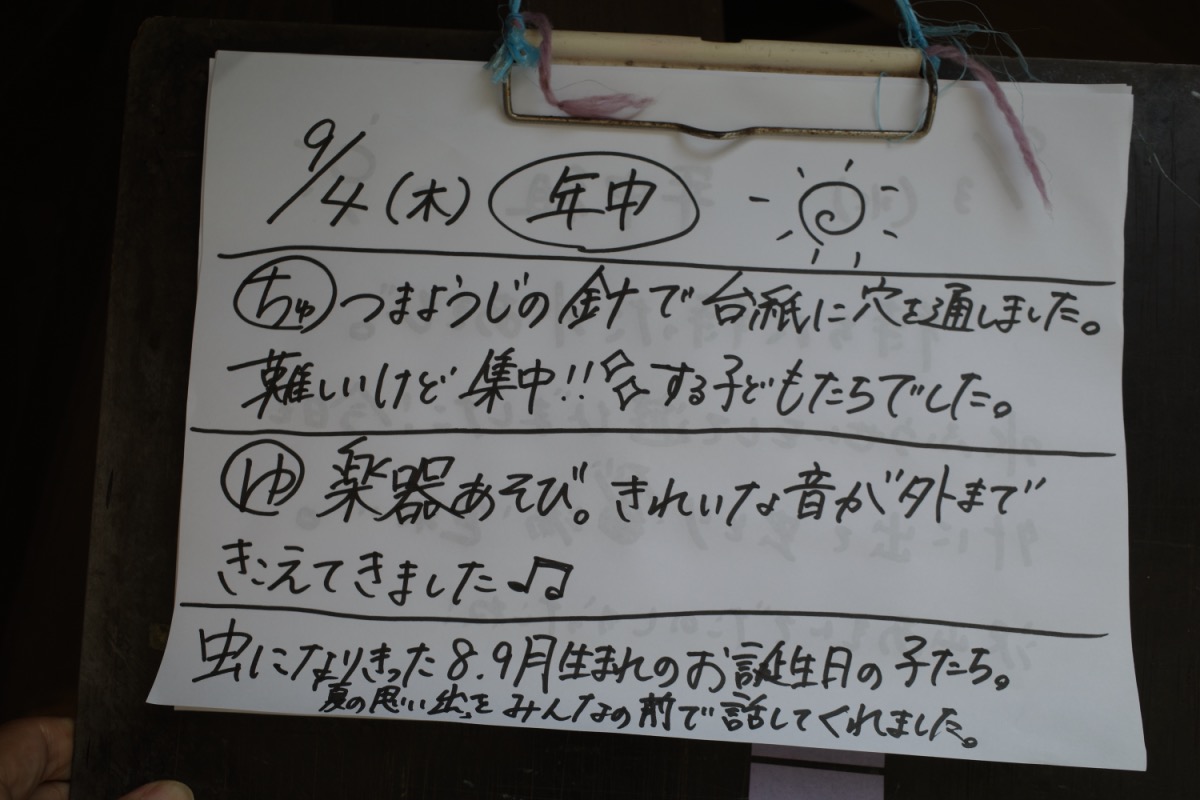 9/4(木) 年中
ちゅ つまようじの針で台紙に穴を通しました。
難しいけど集中!!する子どもたちでした。
ゆ 楽器あそび。きれいな音が外まで
きこえてきました♫
虫になりきった8.9月生まれのお誕生日の子たち。
夏の思い出をみんなの前で話してくれました。